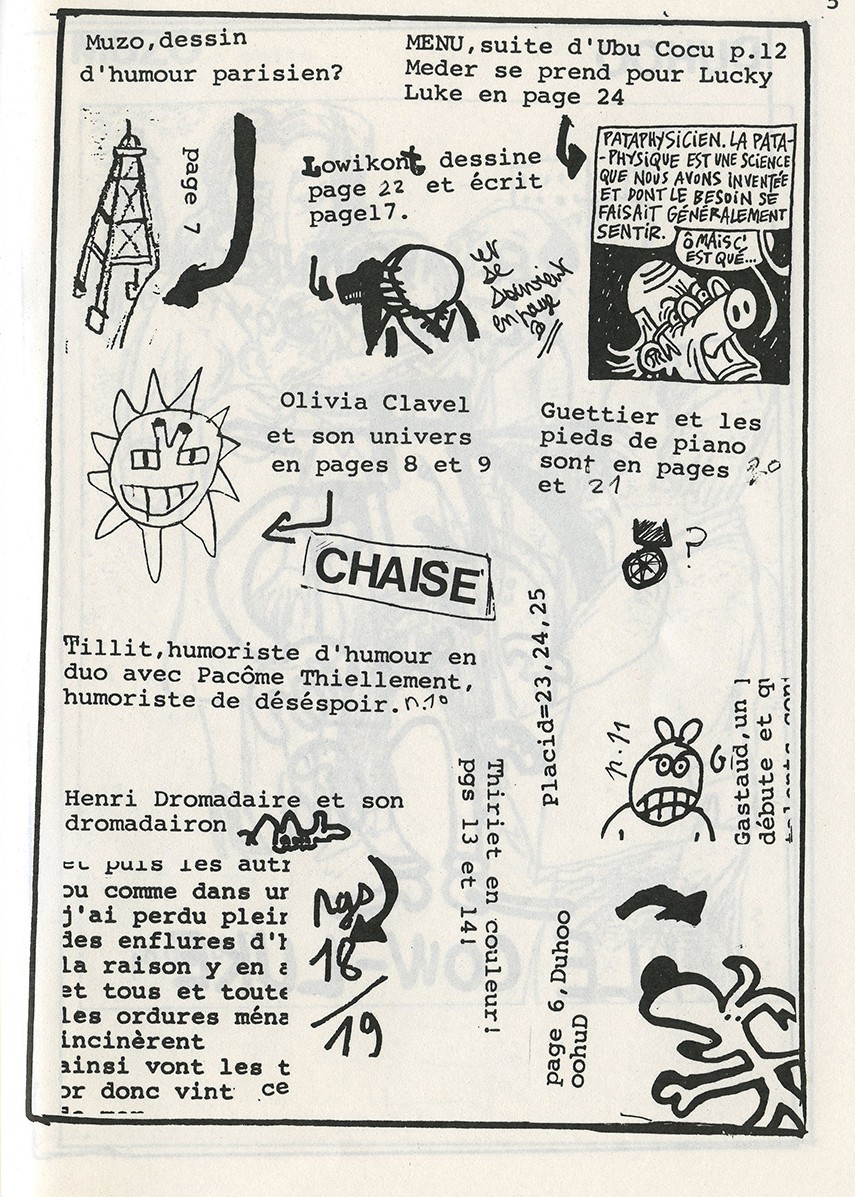 5
Muzo,dessin
d'humour parisien?
MENU,suite d'Ubu Cocu p.12
Meder se prend pour Lucky
Luke en page 24
page 7
Lowikont dessine
page 22 et écrit
page17.
et
se
souvient
en page
PATAPHYSICIEN. LA PATA-
-PHYSIQUE EST UNE SCIENCE
QUE NOUS AVONS INVENTÉE
ET DONT LE BESOIN SE
FAISAIT GÉNÉRALEMENT
SENTIR.
Ô MAIS C'
EST QUE...
Olivia Clavel
et son univers
en pages 8 et 9
Guettier et les
pieds de piano
sont en pages 20
et 21
?
CHAISE
Tillit,humoriste d'humour en
duo avec Pacôme Thiellement,
humoriste de déséspoir.n.10
Placid=23,24,25
p.11
G
Gastaud,un
débute et
Henri Dromadaire et son
dromadairon
Thiriet en couleur!
pgs 13 et 14!
et puis les autr
ou comme dans un
j'ai perdu plein
des enflures d'h
la raison y en a
et tous et toute
les ordures ména
incinèrent
ainsi vont les t
or donc vint ce
pgs
18
/19
page 6,Duhoo
oohuD